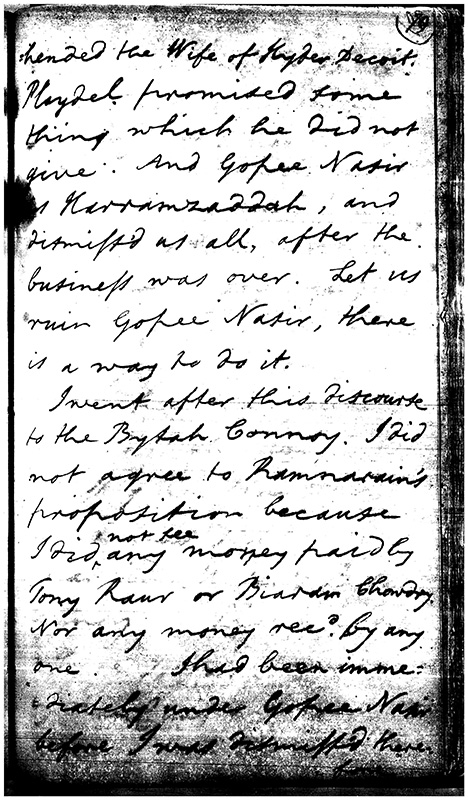 :hended the Wife of Hyder Decoit.
Playdel promised some
thing which he did not
give. And Gopee Nasir
is Harramzaddah, and
dismiss'd us all, after the
business was over. Let us
ruin Gopee Nasir, there
is a way to do it.
I went after this discourse
to the Bytah Connoy. I did
not agree to Ramnarain's
proposition because
not see
I did, any money paid by
Tomy Raur or Biaram Chowdry.
Nor any money rec.d by any
one. I had been imme:
:diately under Gopee Nasir
before I was dismiss'd there.